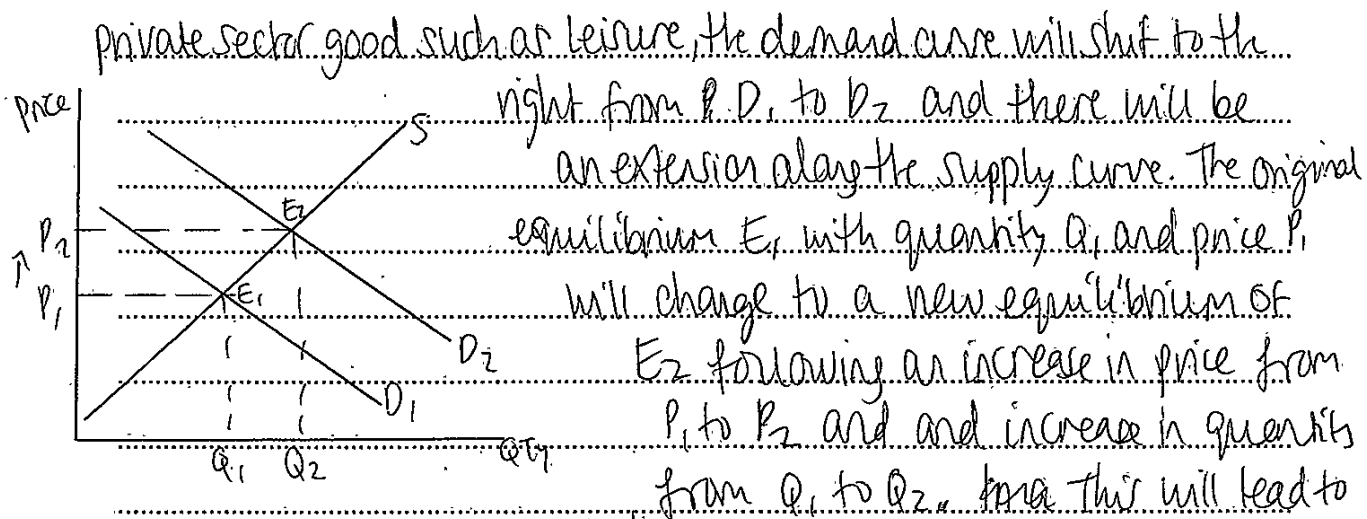 private sector good such as leisure, the demand curve will shift to the
Price
right from D₁ to D₂ and there will be
S
an extension along the supply curve. The original
E₂
P₂
equilibrium E₁ with quantity Q₁ and price P₁
P₁
E₁
will change to a new equilibrium of
D₂
E₂ following an increase in price from
D₁
P₁ to P₂ and and increase in quantity
Q₁ Q₂ QTy
from Q₁ to Q₂. This will lead to